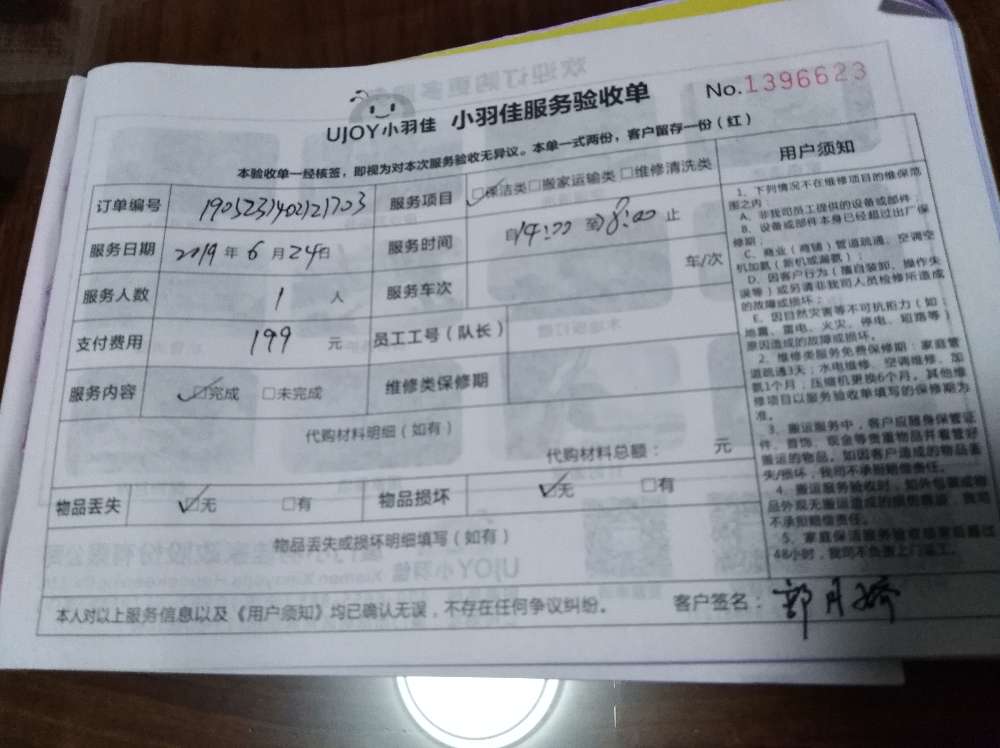 No.1396623
UJOY小羽佳 小羽佳服务验收单
本验收单一经核签，即视为对本次服务验收无异议。本单一式两份，客户留存一份（红）
订单编号 1905231402121703 服务项目 ☑保洁类□搬家运输类□维修清洗类
服务日期 2019年6月24日 服务时间 自14:00至18:00止
服务人数 1 人 服务车次 车/次
支付费用 199 元 员工工号（队长）
服务内容 ☑完成 □未完成 维修类保修期
代购材料明细（如有）
代购材料总额： 元
物品丢失 ☑无 □有 物品损坏 ☑无 □有
物品丢失或损坏明细填写（如有）
本人对以上服务信息以及《用户须知》均已确认无误，不存在任何争议纠纷。 客户签名：郭月娇
用户须知
1、下列情况不在维修项目的维保范
围之内：
A、非我司员工提供的设备或部件；
B、设备或部件本身已经超过出厂保
修期；
C、商业（商铺）管道疏通、空调空
机加氨（新机或漏氨）；
D、因客户行为（擅自装卸、操作失
误等）或另请非我司人员检修所造成
的故障或损坏；
E、因自然灾害等不可抗拒力（如：
地震、雷电、火灾、停电、短路等）
原因造成的故障或损坏。
2、维修类服务免费保修期：家庭管
道疏通3天；水电维修、空调维修、加
氨1个月；压缩机更换6个月。其他维
修项目以服务验收单填写的保修期为
准。
3、搬运服务中，客户应随身保管证
件、首饰、现金等贵重物品并看管好
搬运的物品。如因客户造成的物品丢
失/损坏，我司不承担赔偿责任。
4、搬运服务验收时，如外包装或物
品外观无搬运造成的损伤痕迹，我司
不承担赔偿责任。
5、家庭保洁服务验收或结束后超过
48小时，我司不负责上门返工。